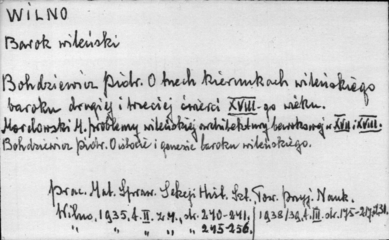 WILNO
Barok wileński
Bohdziewicz Piotr. O trzech kierunkach wileńskiego
baroku drugiej i trzeciej ćwierci XVIII-go wieku.
Morelowski M. problemy wileńskiej architektury barokowej w XVII i XVIII.
Bohdziewicz Piotr. O istocie i genezie baroku wileńskiego.
prac. Mat. Spraw. Sekcji Hist. Szt. Tow. Przyj. Nauk.
Wilno, 1935, t. II. z. 4., str. 240-241, 1938/39, t. III. str. 175-217
" " " " 245-256.